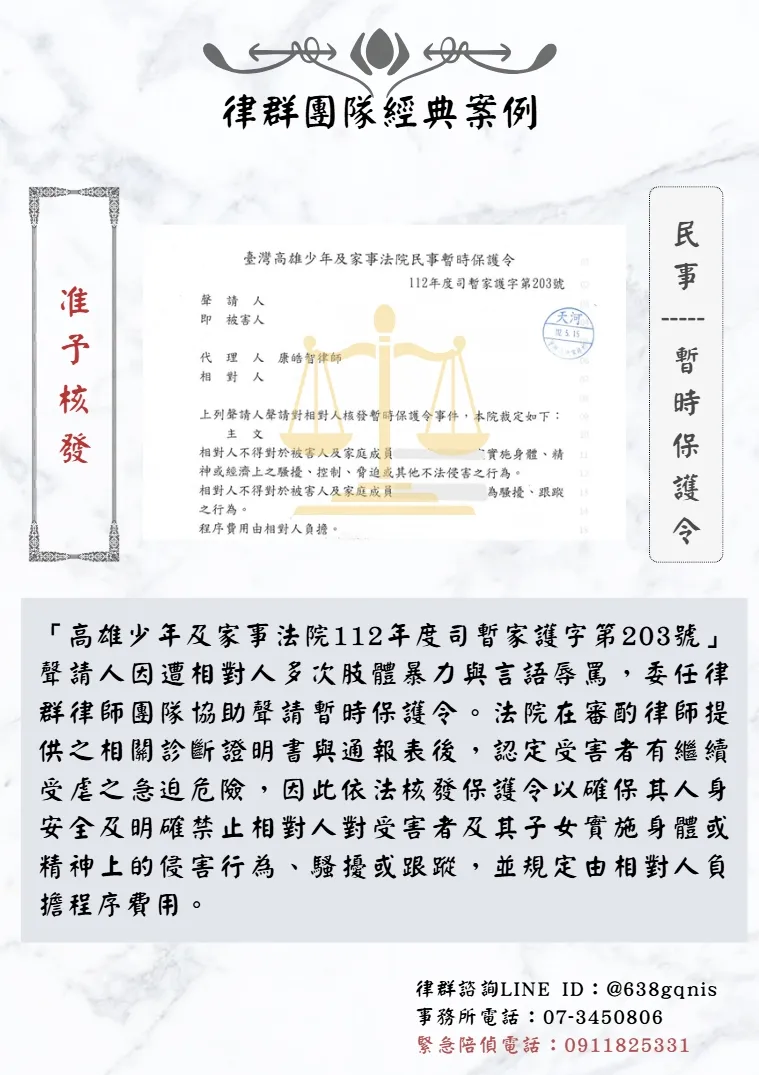 律群團隊經典案例
准予核發
民事-----暫時保護令
臺灣高雄少年及家事法院民事暫時保護令
112年度司暫家護字第203號
聲請人
即被害人
天河
112.5.15
代理人 康皓智律師
相對人
上列聲請人聲請對相對人核發暫時保護令事件，本院裁定如下：
主文
相對人不得對於被害人及家庭成員 實施身體、精
神或經濟上之騷擾、控制、脅迫或其他不法侵害之行為。
相對人不得對於被害人及家庭成員 為騷擾、跟蹤
之行為。
程序費用由相對人負擔。
「高雄少年及家事法院112年度司暫家護字第203號」
聲請人因遭相對人多次肢體暴力與言語辱罵，委任律
群律師團隊協助聲請暫時保護令。法院在審酌律師提
供之相關診斷證明書與通報表後，認定受害者有繼續
受虐之急迫危險，因此依法核發保護令以確保其人身
安全及明確禁止相對人對受害者及其子女實施身體或
精神上的侵害行為、騷擾或跟蹤，並規定由相對人負
擔程序費用。
律群諮詢LINE ID：@638gqnis
事務所電話：07-3450806
緊急陪偵電話：0911825331